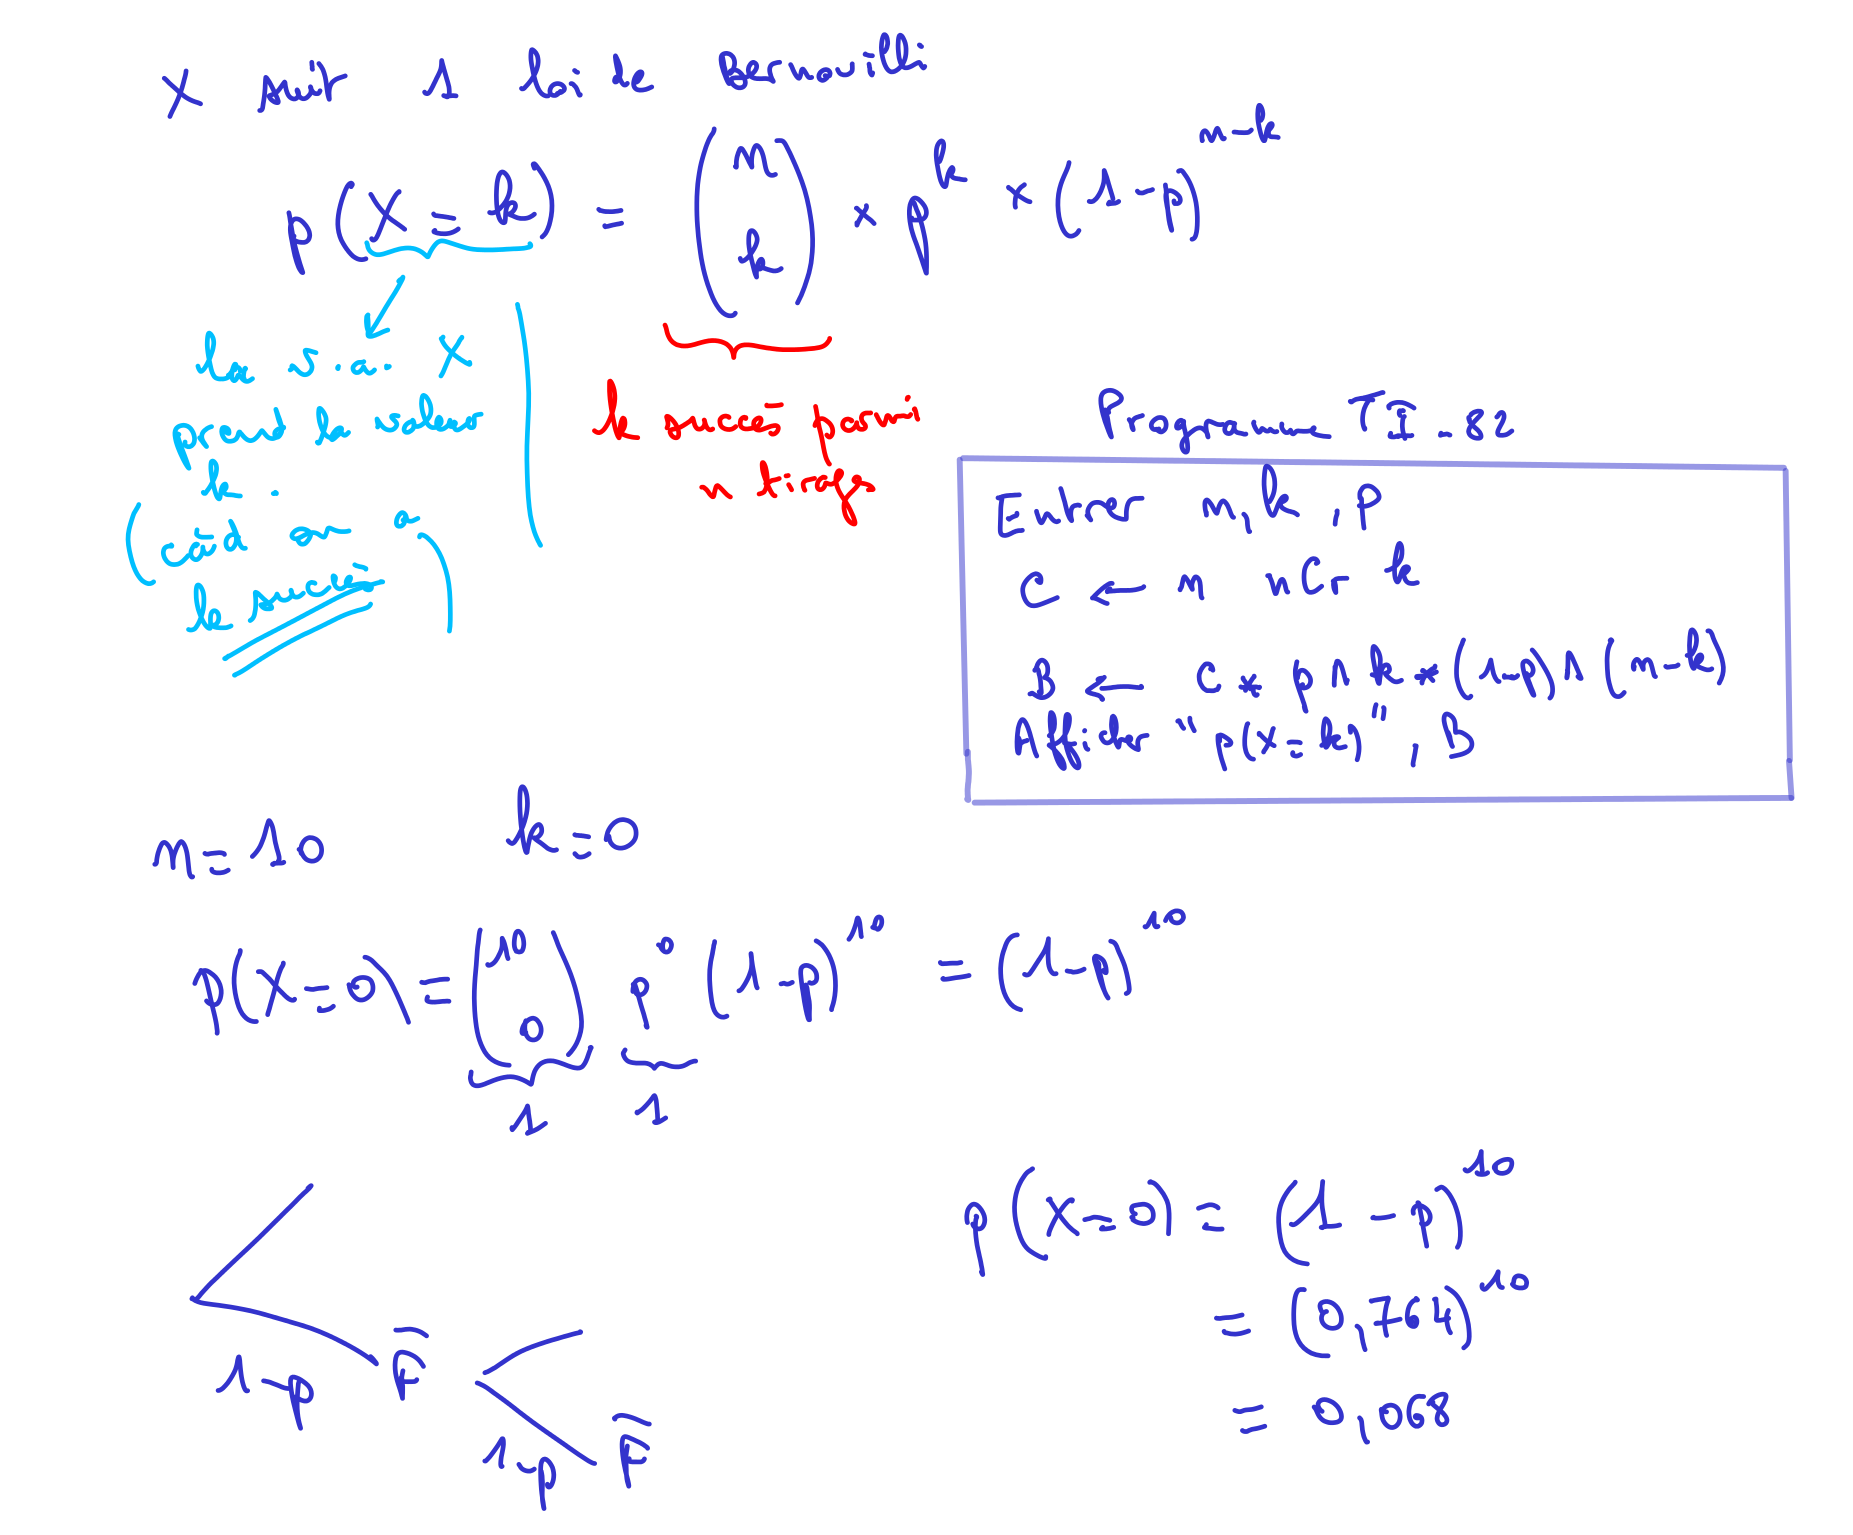 X suit 1 loi de Bernouilli
p(X = k) = (n k) × p^k × (1-p)^(n-k)
la v.a. X
prend la valeur
k.
(càd on a
le succès)
k succès parmi
n tirages
Programme TI-82
Entrer n, k, p
C ← n nCr k
B ← C * p ∧ k * (1-p) ∧ (n-k)
Afficher "p(X=k)", B
n = 10 k = 0
p(X=0) = (10 0) p^0 (1-p)^10 = (1-p)^10
1 1
1-p F̅
1-p F̅
p(X=0) = (1-p)^10
= (0,764)^10
= 0,068